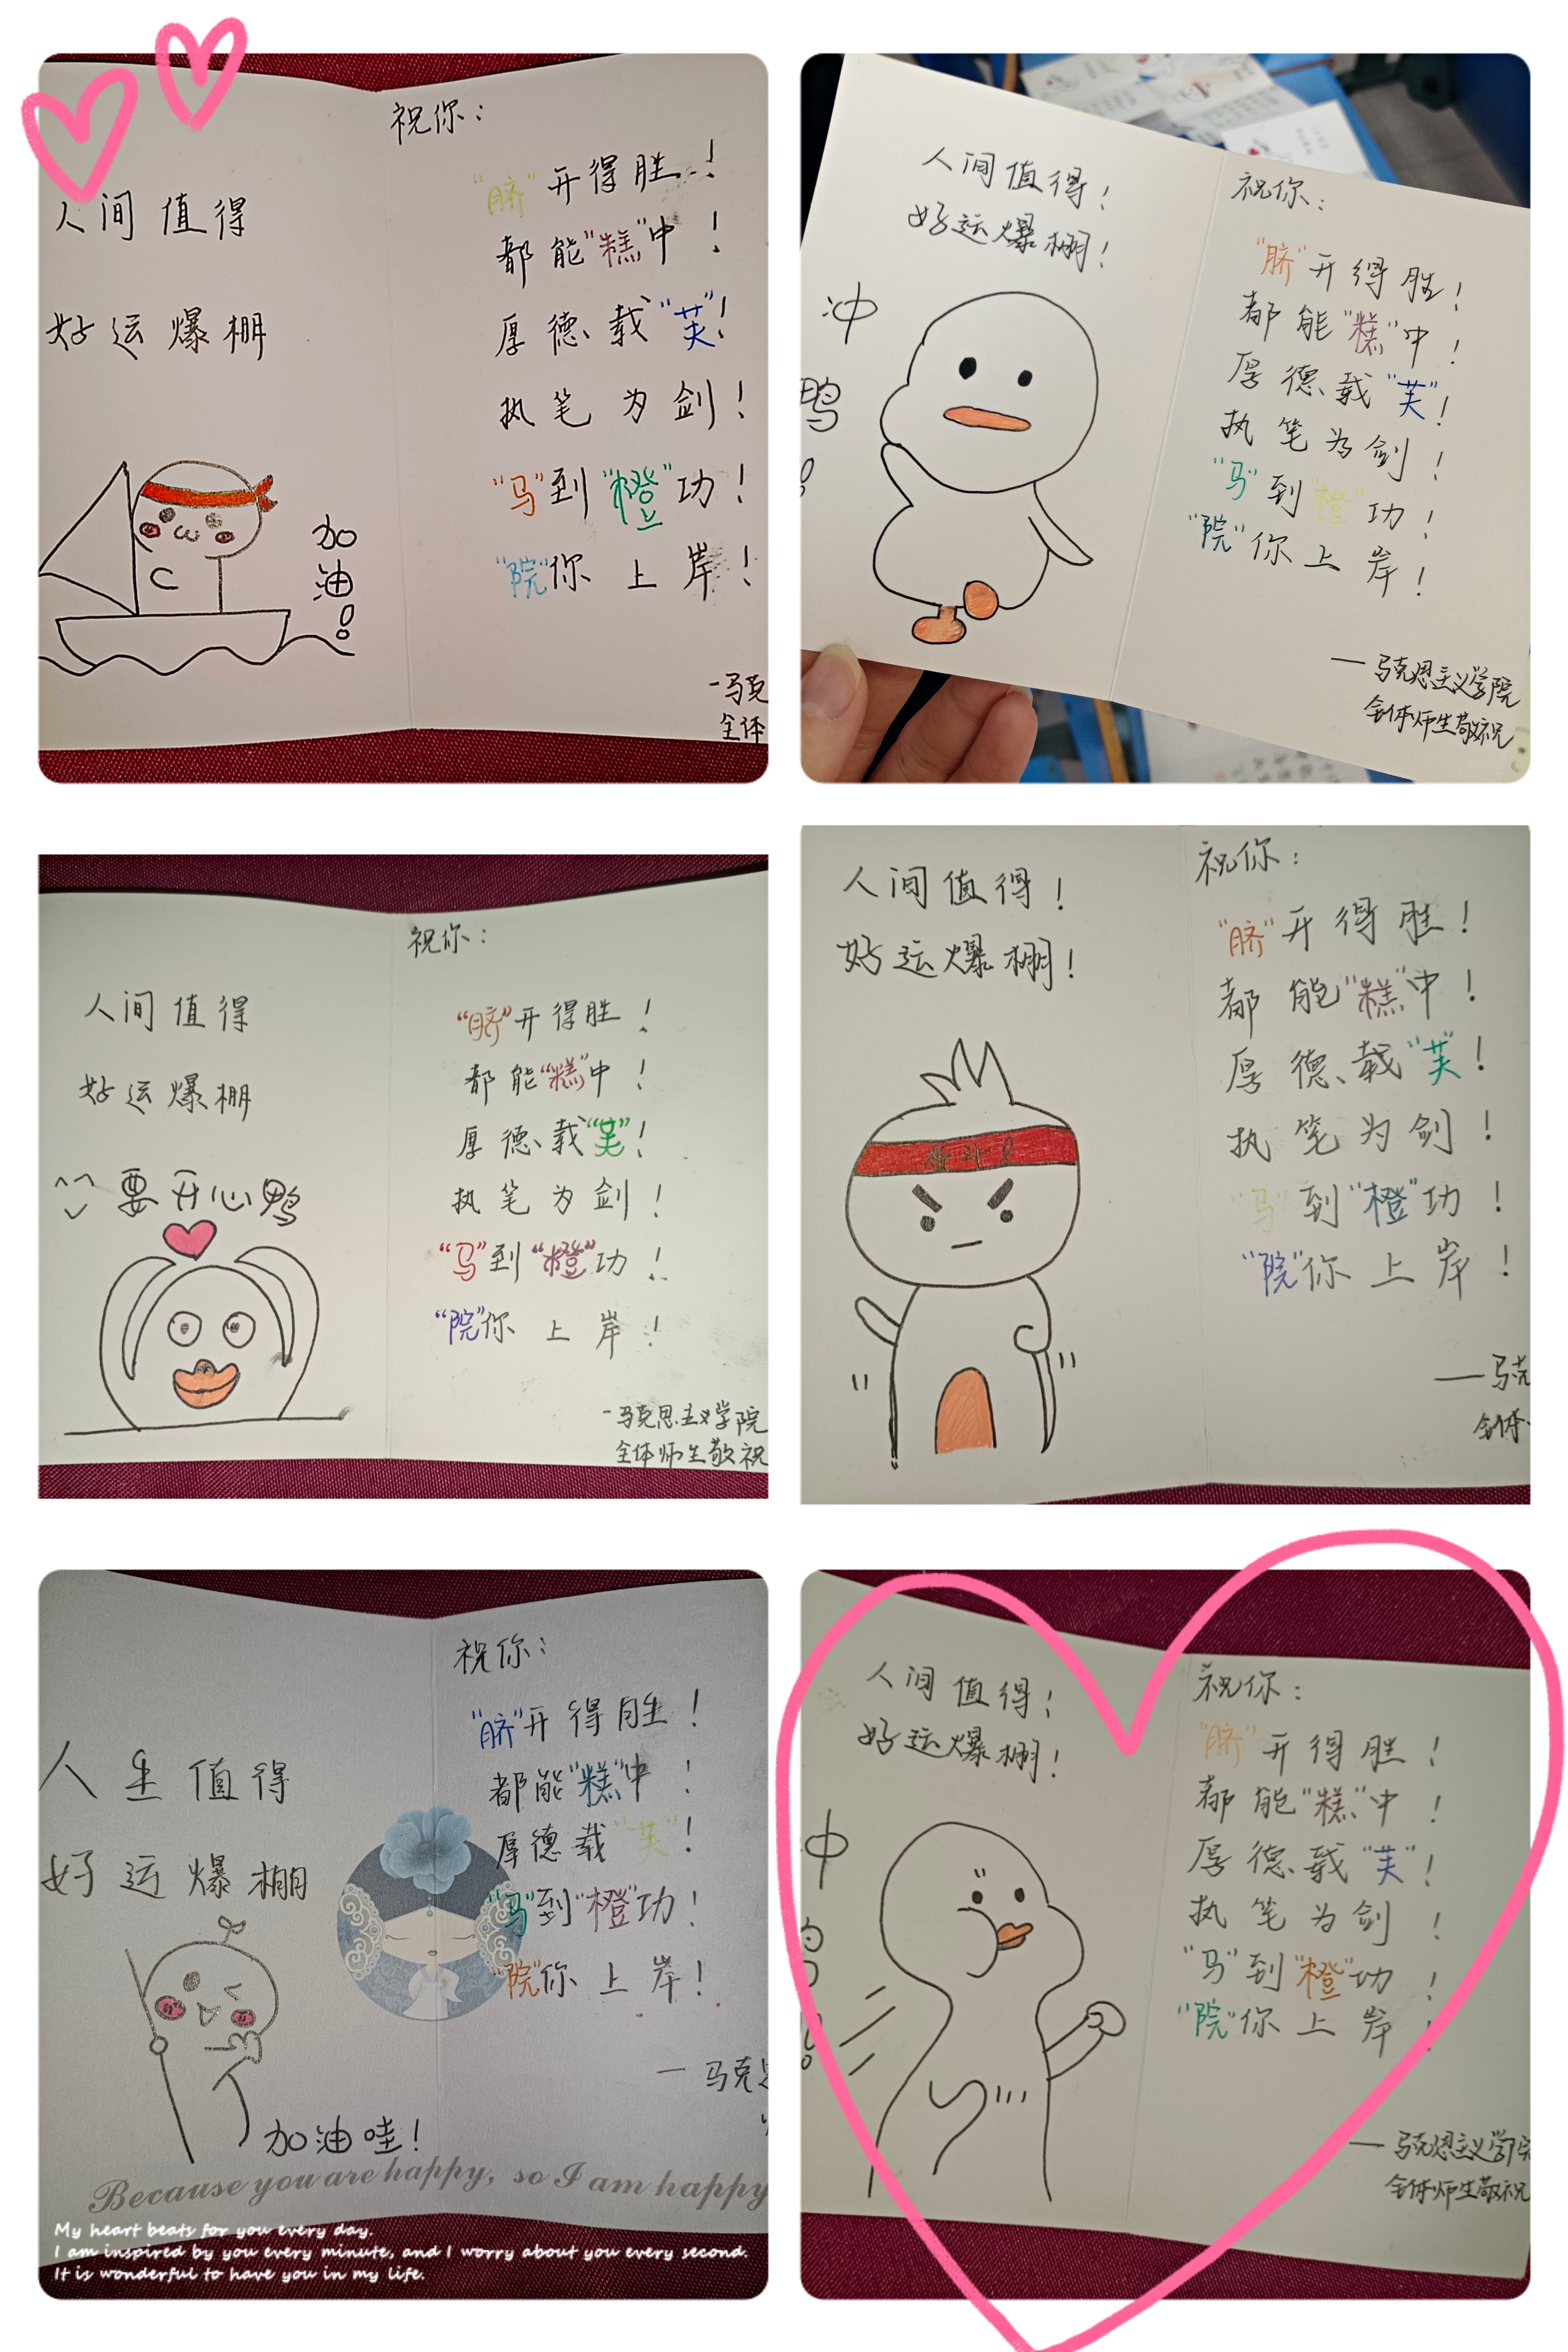 人间值得
好运爆棚
加油!
祝你:
"脐"开得胜!
都能"糕"中!
厚德载"芙"!
执笔为剑!
"马"到"橙"功!
"院"你上岸!
-马克
全体
人间值得!
好运爆棚!
冲鸭!
祝你:
"脐"开得胜!
都能"糕"中!
厚德载"芙"!
执笔为剑!
"马"到"橙"功!
"院"你上岸!
—马克思主义学院
全体师生敬祝
人间值得
好运爆棚
要开心鸭
祝你:
"脐"开得胜!
都能"糕"中!
厚德载"芙"!
执笔为剑!
"马"到"橙"功!
"院"你上岸!
-马克思主义学院
全体师生敬祝
人间值得!
好运爆棚!
奋斗!
祝你:
"脐"开得胜!
都能"糕"中!
厚德载"芙"!
执笔为剑!
"马"到"橙"功!
"院"你上岸!
—马克
全体
人生值得
好运爆棚
加油哇!
祝你:
"脐"开得胜!
都能"糕"中!
厚德载"芙"!
"马"到"橙"功!
"院"你上岸!
—马克
Because you are happy, so I am happy
My heart beats for you every day.
I am inspired by you every minute, and I worry about you every second.
It is wonderful to have you in my life.
人间值得!
好运爆棚!
祝你:
"脐"开得胜!
都能"糕"中!
厚德载"芙"!
执笔为剑!
"马"到"橙"功!
"院"你上岸!
—马克思主义学院
全体师生敬祝